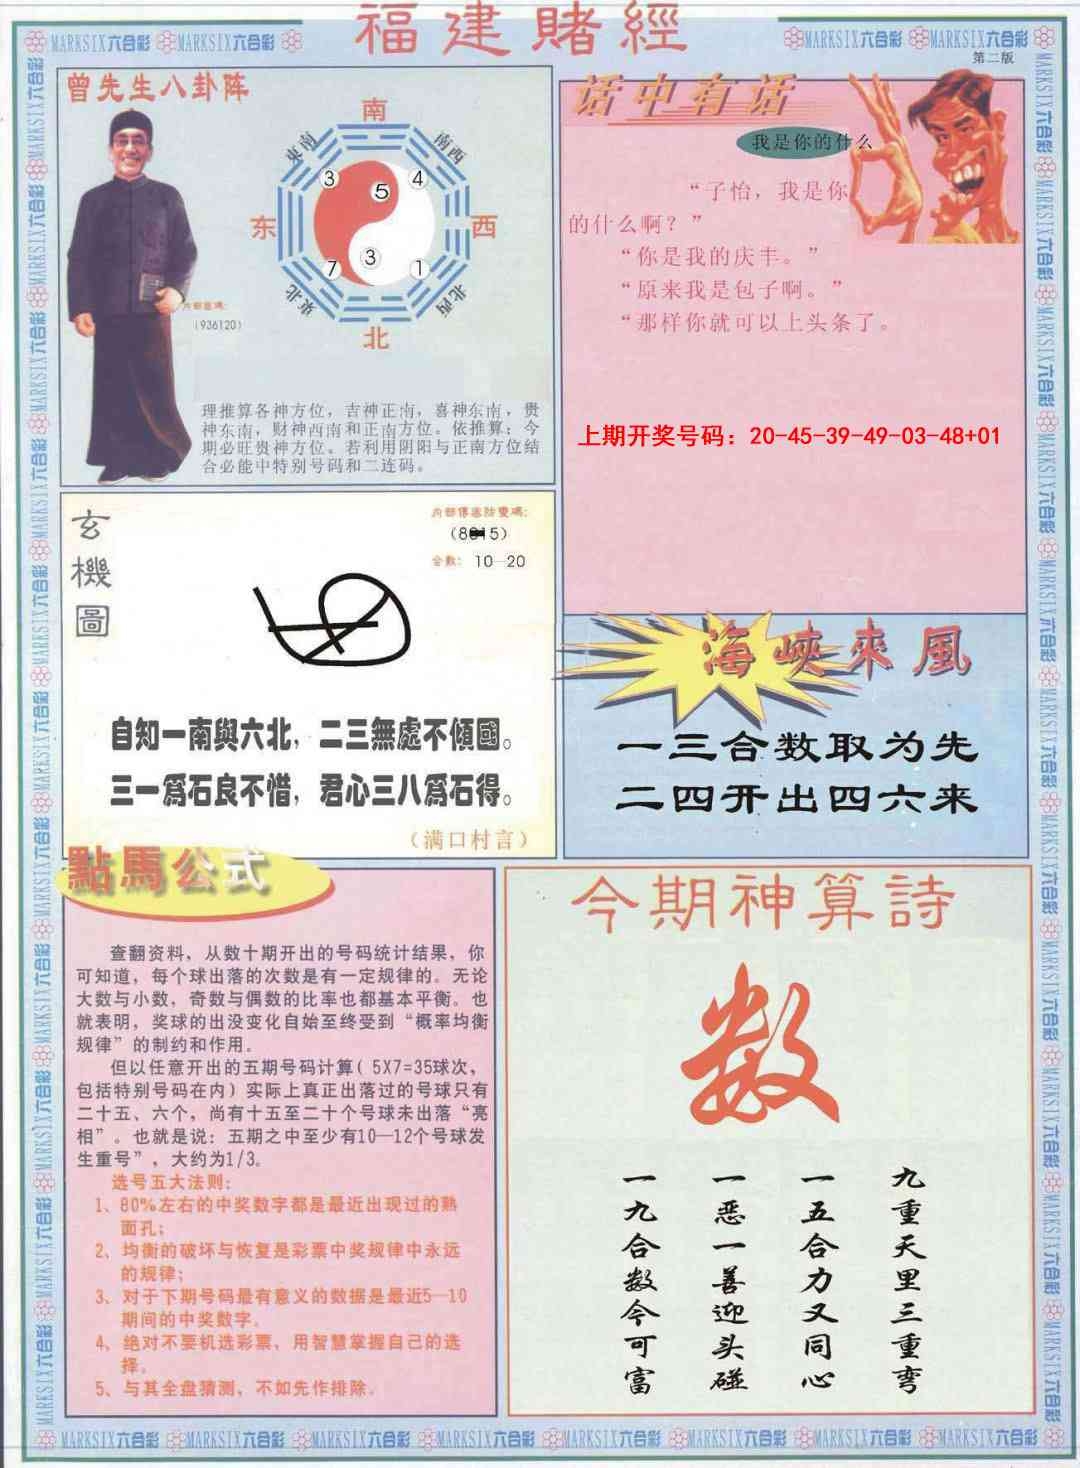 福建賭經
MARKSIX六合彩 MARKSIX六合彩
MARKSIX六合彩 MARKSIX六合彩
第二版
曾先生八卦阵
南
東南
南西
3
5
4
东
西
7
3
1
東北
北西
北
内部密碼:
(936120)
理推算各神方位，吉神正南，喜神东南，贵
神东南，财神西南和正南方位。依推算：今
期必旺贵神方位。若利用阴阳与正南方位结
合必能中特别号码和二连码。
话中有话
我是你的什么
“子怡，我是你
的什么啊？”
“你是我的庆丰。”
“原来我是包子啊。”
“那样你就可以上头条了。
上期开奖号码：20-45-39-49-03-48+01
玄機圖
合數: 10—20
自知一南與六北，二三無處不傾國。
三一爲石良不惜，君心三八爲石得。
（满口村言）
海峽來風
一三合数取为先
二四开出四六来
點馬公式
查翻资料，从数十期开出的号码统计结果，你
可知道，每个球出落的次数是有一定规律的。无论
大数与小数，奇数与偶数的比率也都基本平衡。也
就表明，奖球的出没变化自始至终受到“概率均衡
规律”的制约和作用。
但以任意开出的五期号码计算( 5X7=35球次，
包括特别号码在内）实际上真正出落过的号球只有
二十五、六个，尚有十五至二十个号球未出落“亮
相”。也就是说：五期之中至少有10—12个号球发
生重号”，大约为1/3。
选号五大法则:
1、80%左右的中奖数字都是最近出现过的熟
面孔；
2、均衡的破坏与恢复是彩票中奖规律中永远
的规律；
3、对于下期号码最有意义的数据是最近5—10
期间的中奖数字。
4、绝对不要机选彩票，用智慧掌握自己的选
择。
5、与其全盘猜测，不如先作排除。
今期神算詩
数
九重天里三重弯
一五合力又同心
一恶一善迎头碰
一九合数今可富
MARKSIX六合彩 MARKSIX六合彩 MARKSIX六合彩 MARKSIX六合彩 MARKSIX六合彩 MARKSIX六合彩 MARKSIX六合彩 MARKSIX六合彩